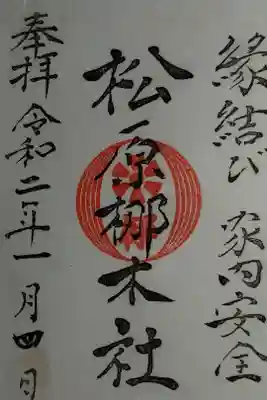 縁結び 家内安全
松原梛木社
奉拝 令和二年十一月四日